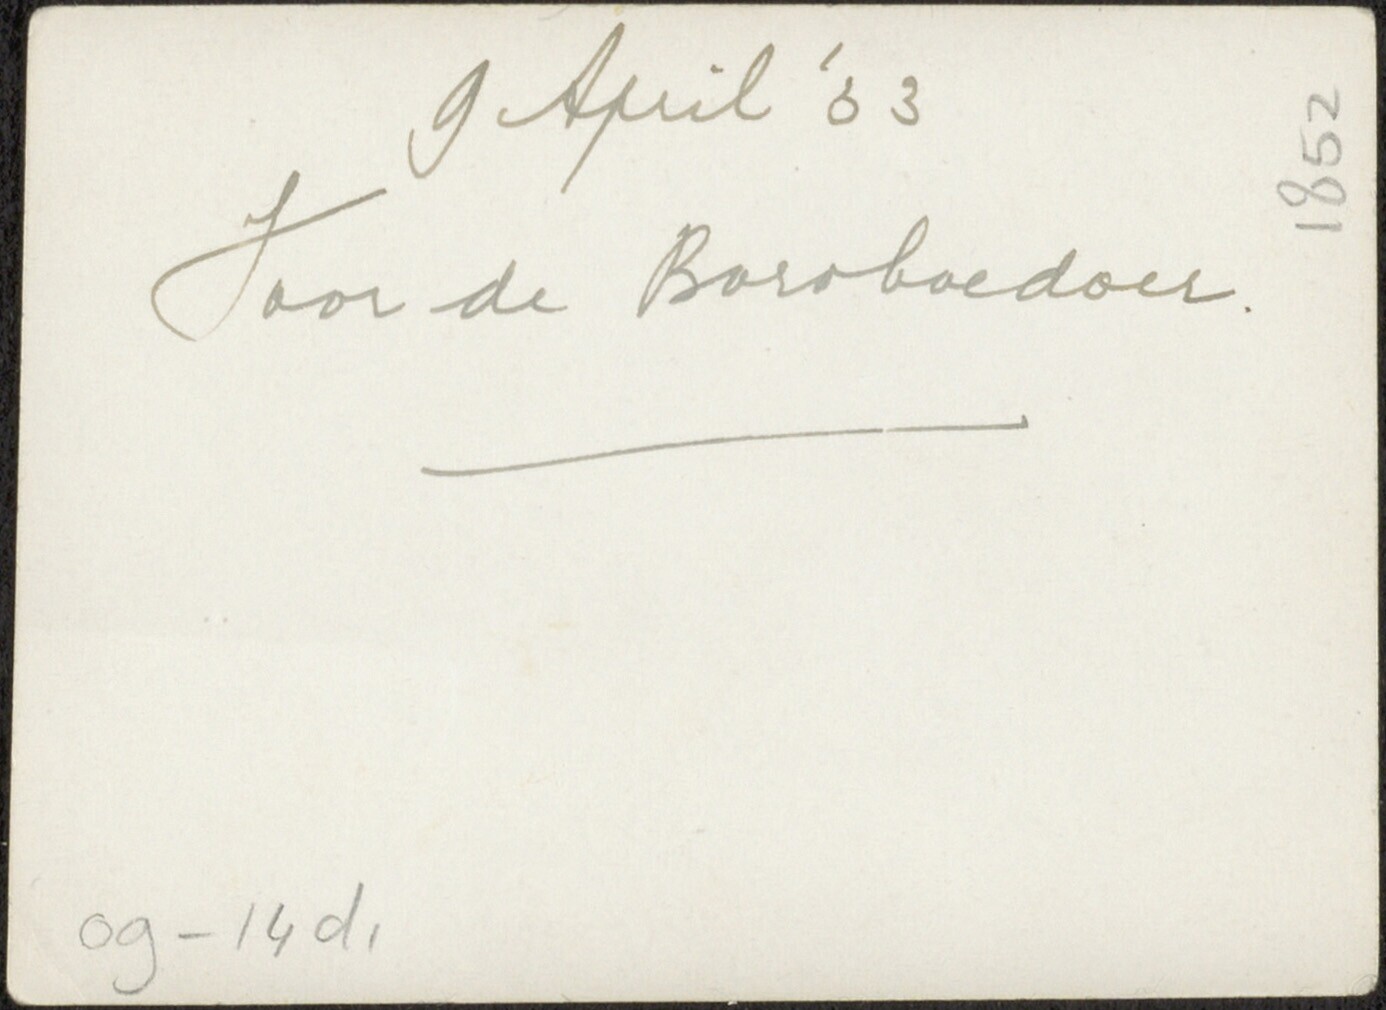 9 April '33
Voor de Boroboedoer.
1852
og - 14 d1